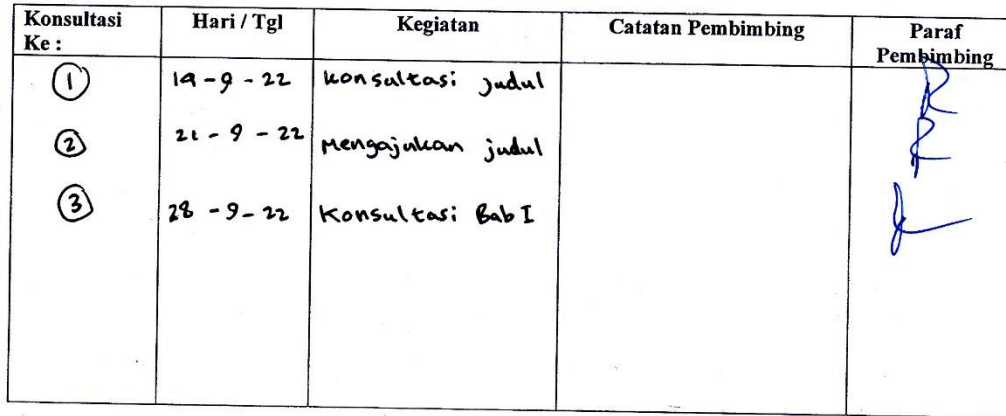 Konsultasi Ke : Hari / Tgl Kegiatan Catatan Pembimbing Paraf Pembimbing
1 19-9-22 konsultasi judul
2 21-9-22 Mengajukan judul
3 28-9-22 Konsultasi Bab I